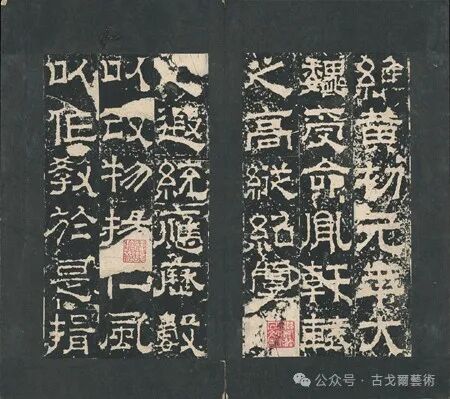 維黃初元年大
魏受命胤軒轅
之高縱紹虞
之遐統應歷數
以改物揚仁風
以作教於是揖
公众号 · 古戈爾藝術